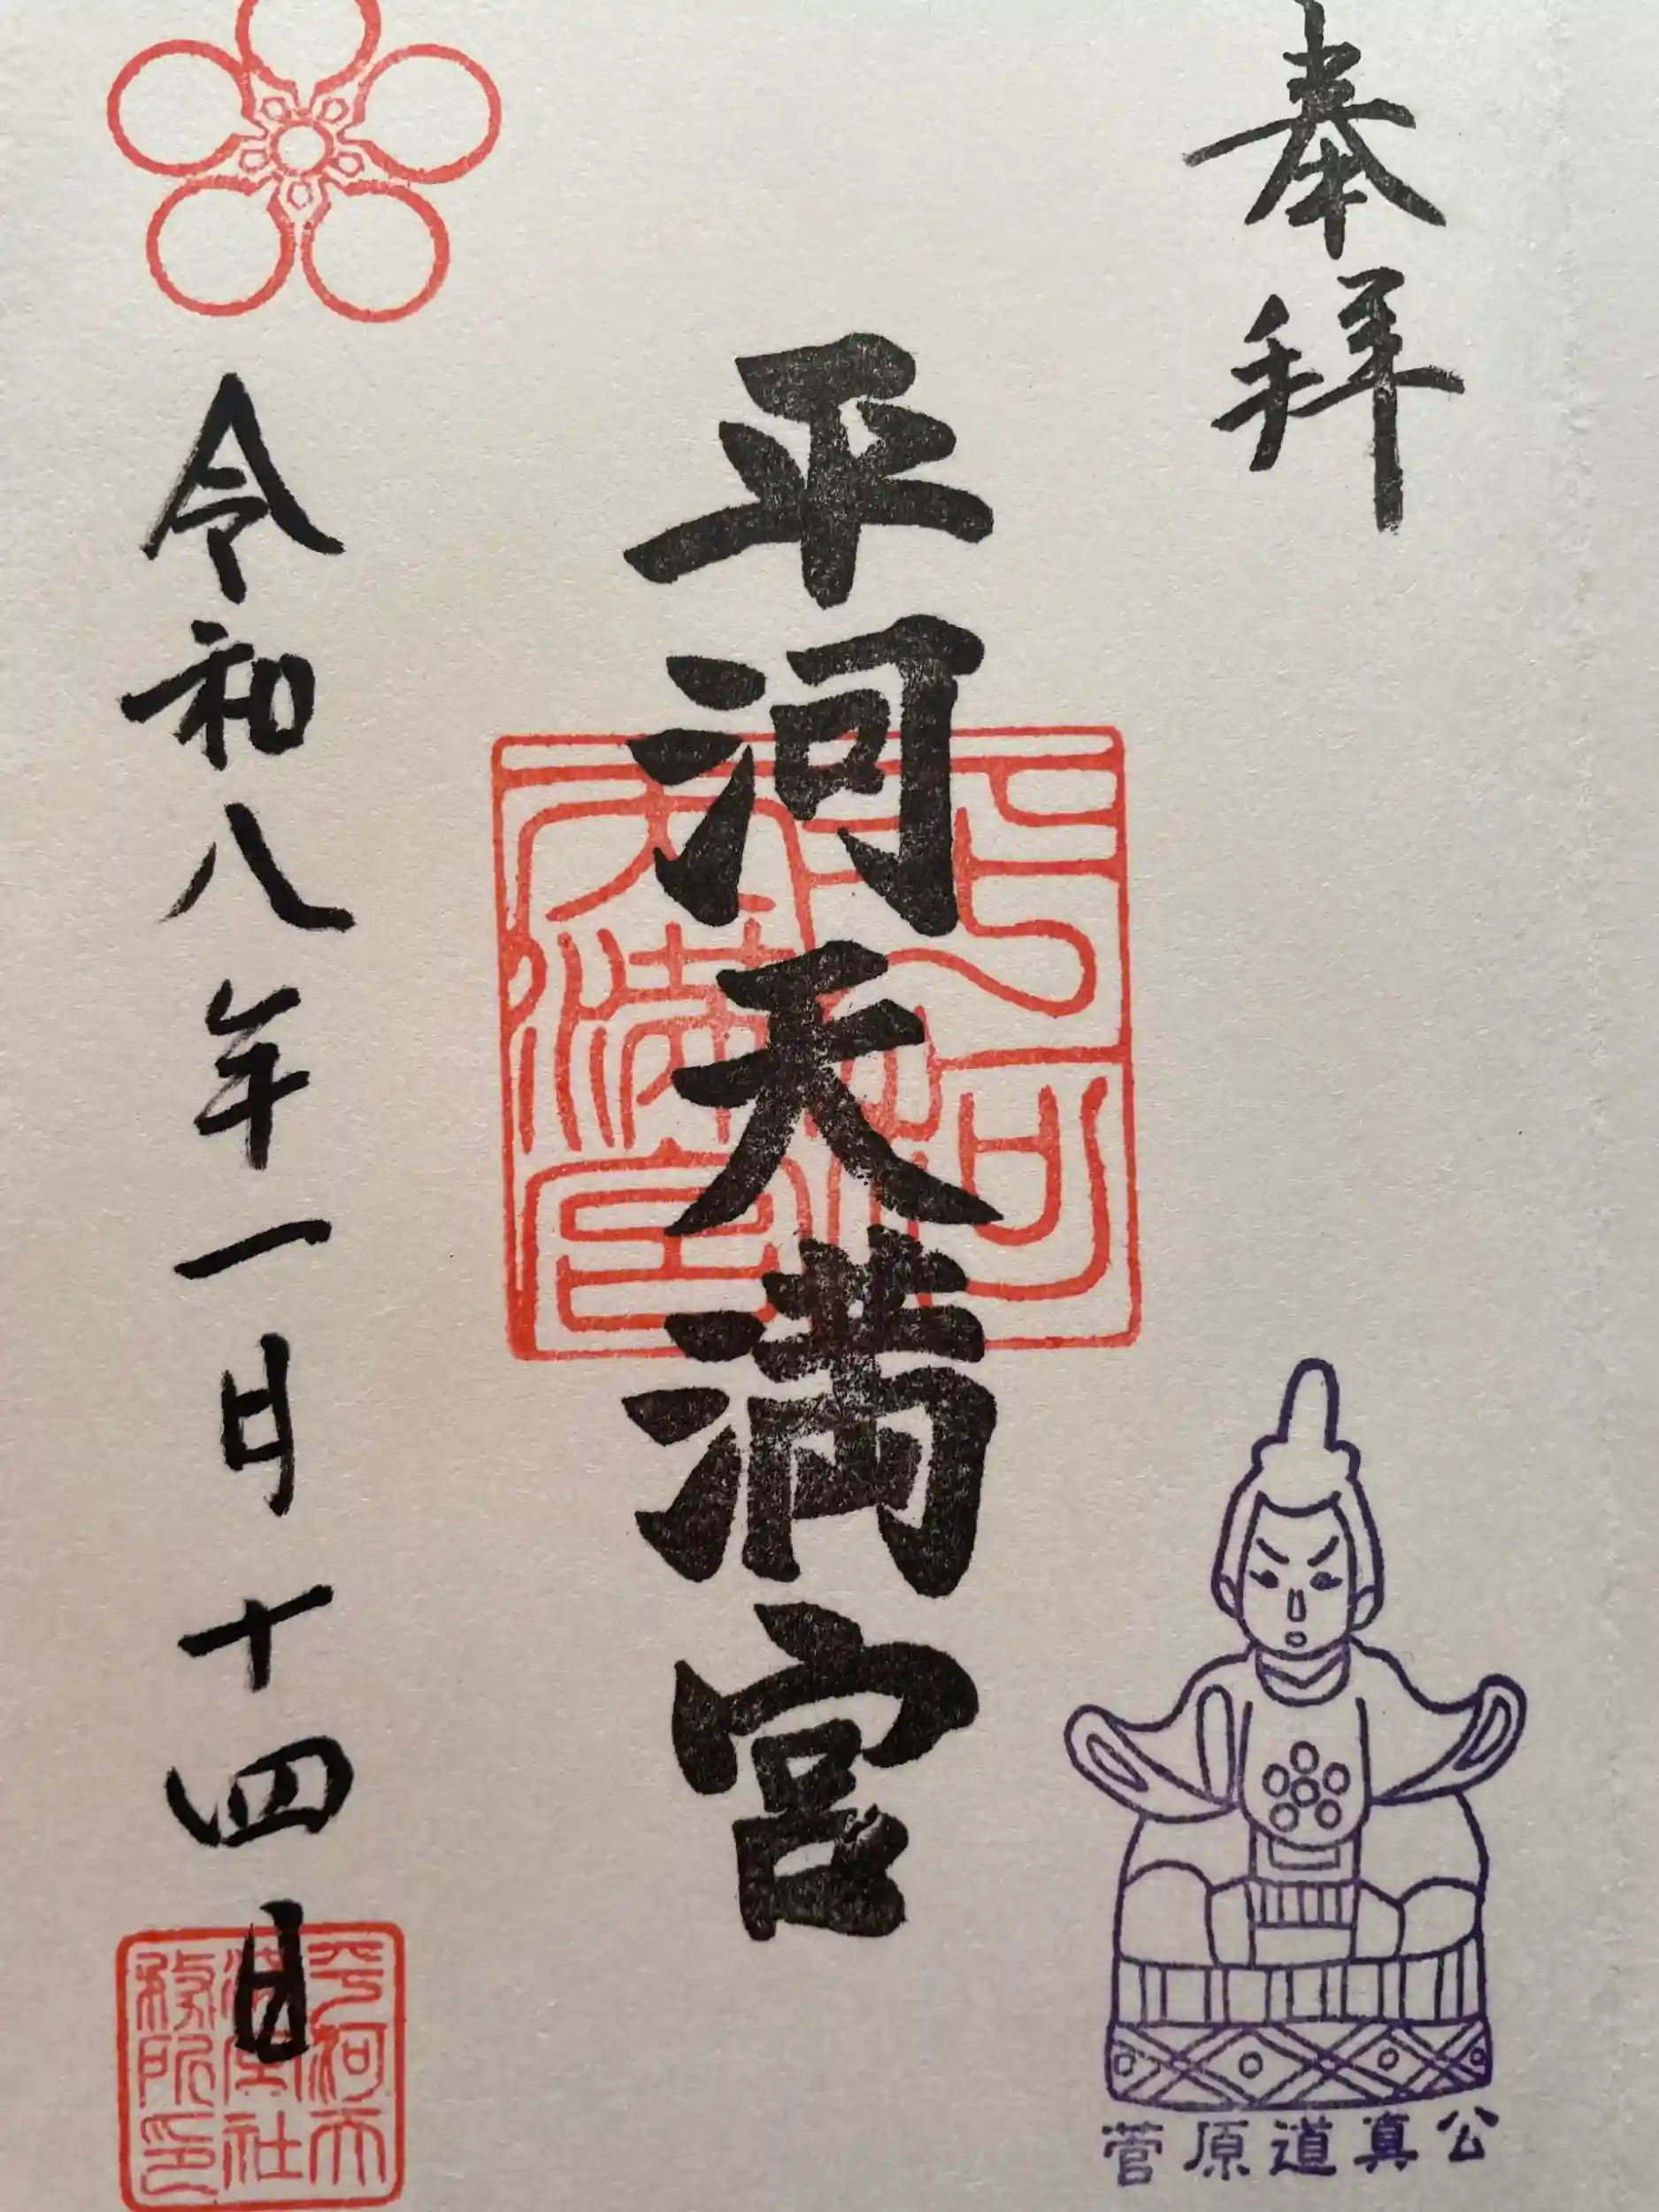 奉拝
平河天満宮
平河天満宮
菅原道真公
令和八年一月十四日
平河天
満宮社
務所印